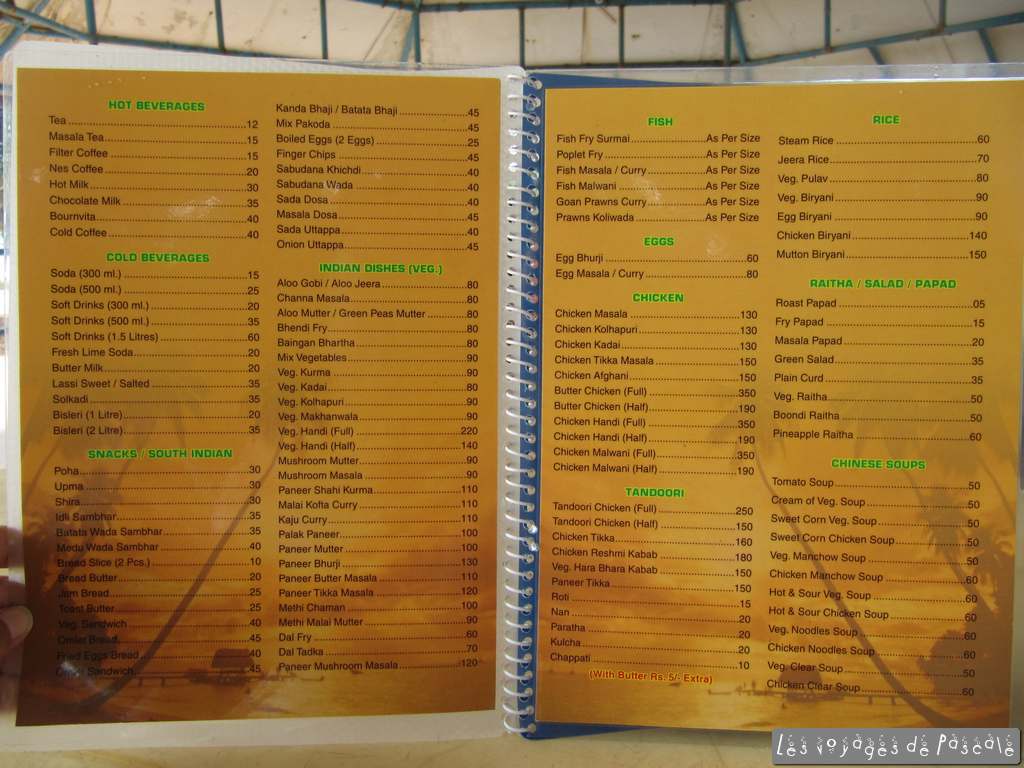 HOT BEVERAGES
Tea 12
Masala Tea 15
Filter Coffee 15
Nes Coffee 20
Hot Milk 30
Chocolate Milk 35
Bournvita 40
Cold Coffee 40
COLD BEVERAGES
Soda (300 ml.) 15
Soda (500 ml.) 25
Soft Drinks (300 ml.) 20
Soft Drinks (500 ml.) 35
Soft Drinks (1.5 Litres) 60
Fresh Lime Soda 20
Butter Milk 20
Lassi Sweet / Salted 35
Solkadi 35
Bisleri (1 Litre) 20
Bisleri (2 Litre) 35
SNACKS / SOUTH INDIAN
Poha 30
Upma 30
Shira 30
Idli Sambhar 35
Batata Wada Sambhar 35
Medu Wada Sambhar 40
Bread Slice (2 Pcs.) 10
Bread Butter 20
Jam Bread 25
Toast Butter 25
Veg. Sandwich 40
Omlet Bread 45
Fried Eggs Bread 40
Sandwich 45
Kanda Bhaji / Batata Bhaji 45
Mix Pakoda 45
Boiled Eggs (2 Eggs) 25
Finger Chips 45
Sabudana Khichdi 40
Sabudana Wada 40
Sada Dosa 40
Masala Dosa 45
Sada Uttappa 40
Onion Uttappa 45
INDIAN DISHES (VEG.)
Aloo Gobi / Aloo Jeera 80
Channa Masala 80
Aloo Mutter / Green Peas Mutter 80
Bhendi Fry 80
Baingan Bhartha 80
Mix Vegetables 90
Veg. Kurma 90
Veg. Kadai 80
Veg. Kolhapuri 90
Veg. Makhanwala 90
Veg. Handi (Full) 220
Veg. Handi (Half) 140
Mushroom Mutter 90
Mushroom Masala 90
Paneer Shahi Kurma 110
Malai Kofta Curry 110
Kaju Curry 110
Palak Paneer 100
Paneer Mutter 100
Paneer Bhurji 130
Paneer Butter Masala 110
Paneer Tikka Masala 120
Methi Chaman 100
Methi Malai Mutter 90
Dal Fry 60
Dal Tadka 70
Paneer Mushroom Masala 120
FISH
Fish Fry Surmai As Per Size
Poplet Fry As Per Size
Fish Masala / Curry As Per Size
Fish Malwani As Per Size
Goan Prawns Curry As Per Size
Prawns Koliwada As Per Size
EGGS
Egg Bhurji 60
Egg Masala / Curry 80
CHICKEN
Chicken Masala 130
Chicken Kolhapuri 130
Chicken Kadai 130
Chicken Tikka Masala 150
Chicken Afghani 150
Butter Chicken (Full) 350
Butter Chicken (Half) 190
Chicken Handi (Full) 350
Chicken Handi (Half) 190
Chicken Malwani (Full) 350
Chicken Malwani (Half) 190
TANDOORI
Tandoori Chicken (Full) 250
Tandoori Chicken (Half) 150
Chicken Tikka 160
Chicken Reshmi Kabab 180
Veg. Hara Bhara Kabab 150
Paneer Tikka 150
Roti 15
Nan 20
Paratha 20
Kulcha 20
Chappati 10
(With Butter Rs. 5/- Extra)
RICE
Steam Rice 60
Jeera Rice 70
Veg. Pulav 80
Veg. Biryani 90
Egg Biryani 90
Chicken Biryani 140
Mutton Biryani 150
RAITHA / SALAD / PAPAD
Roast Papad 05
Fry Papad 15
Masala Papad 20
Green Salad 35
Plain Curd 35
Veg. Raitha 50
Boondi Raitha 50
Pineapple Raitha 60
CHINESE SOUPS
Tomato Soup 50
Cream of Veg. Soup 50
Sweet Corn Veg. Soup 50
Sweet Corn Chicken Soup 50
Veg. Manchow Soup 50
Chicken Manchow Soup 60
Hot & Sour Veg. Soup 60
Hot & Sour Chicken Soup 60
Veg. Noodles Soup 60
Chicken Noodles Soup 60
Veg. Clear Soup 60
Chicken Clear Soup 60
Les voyages de Pascale